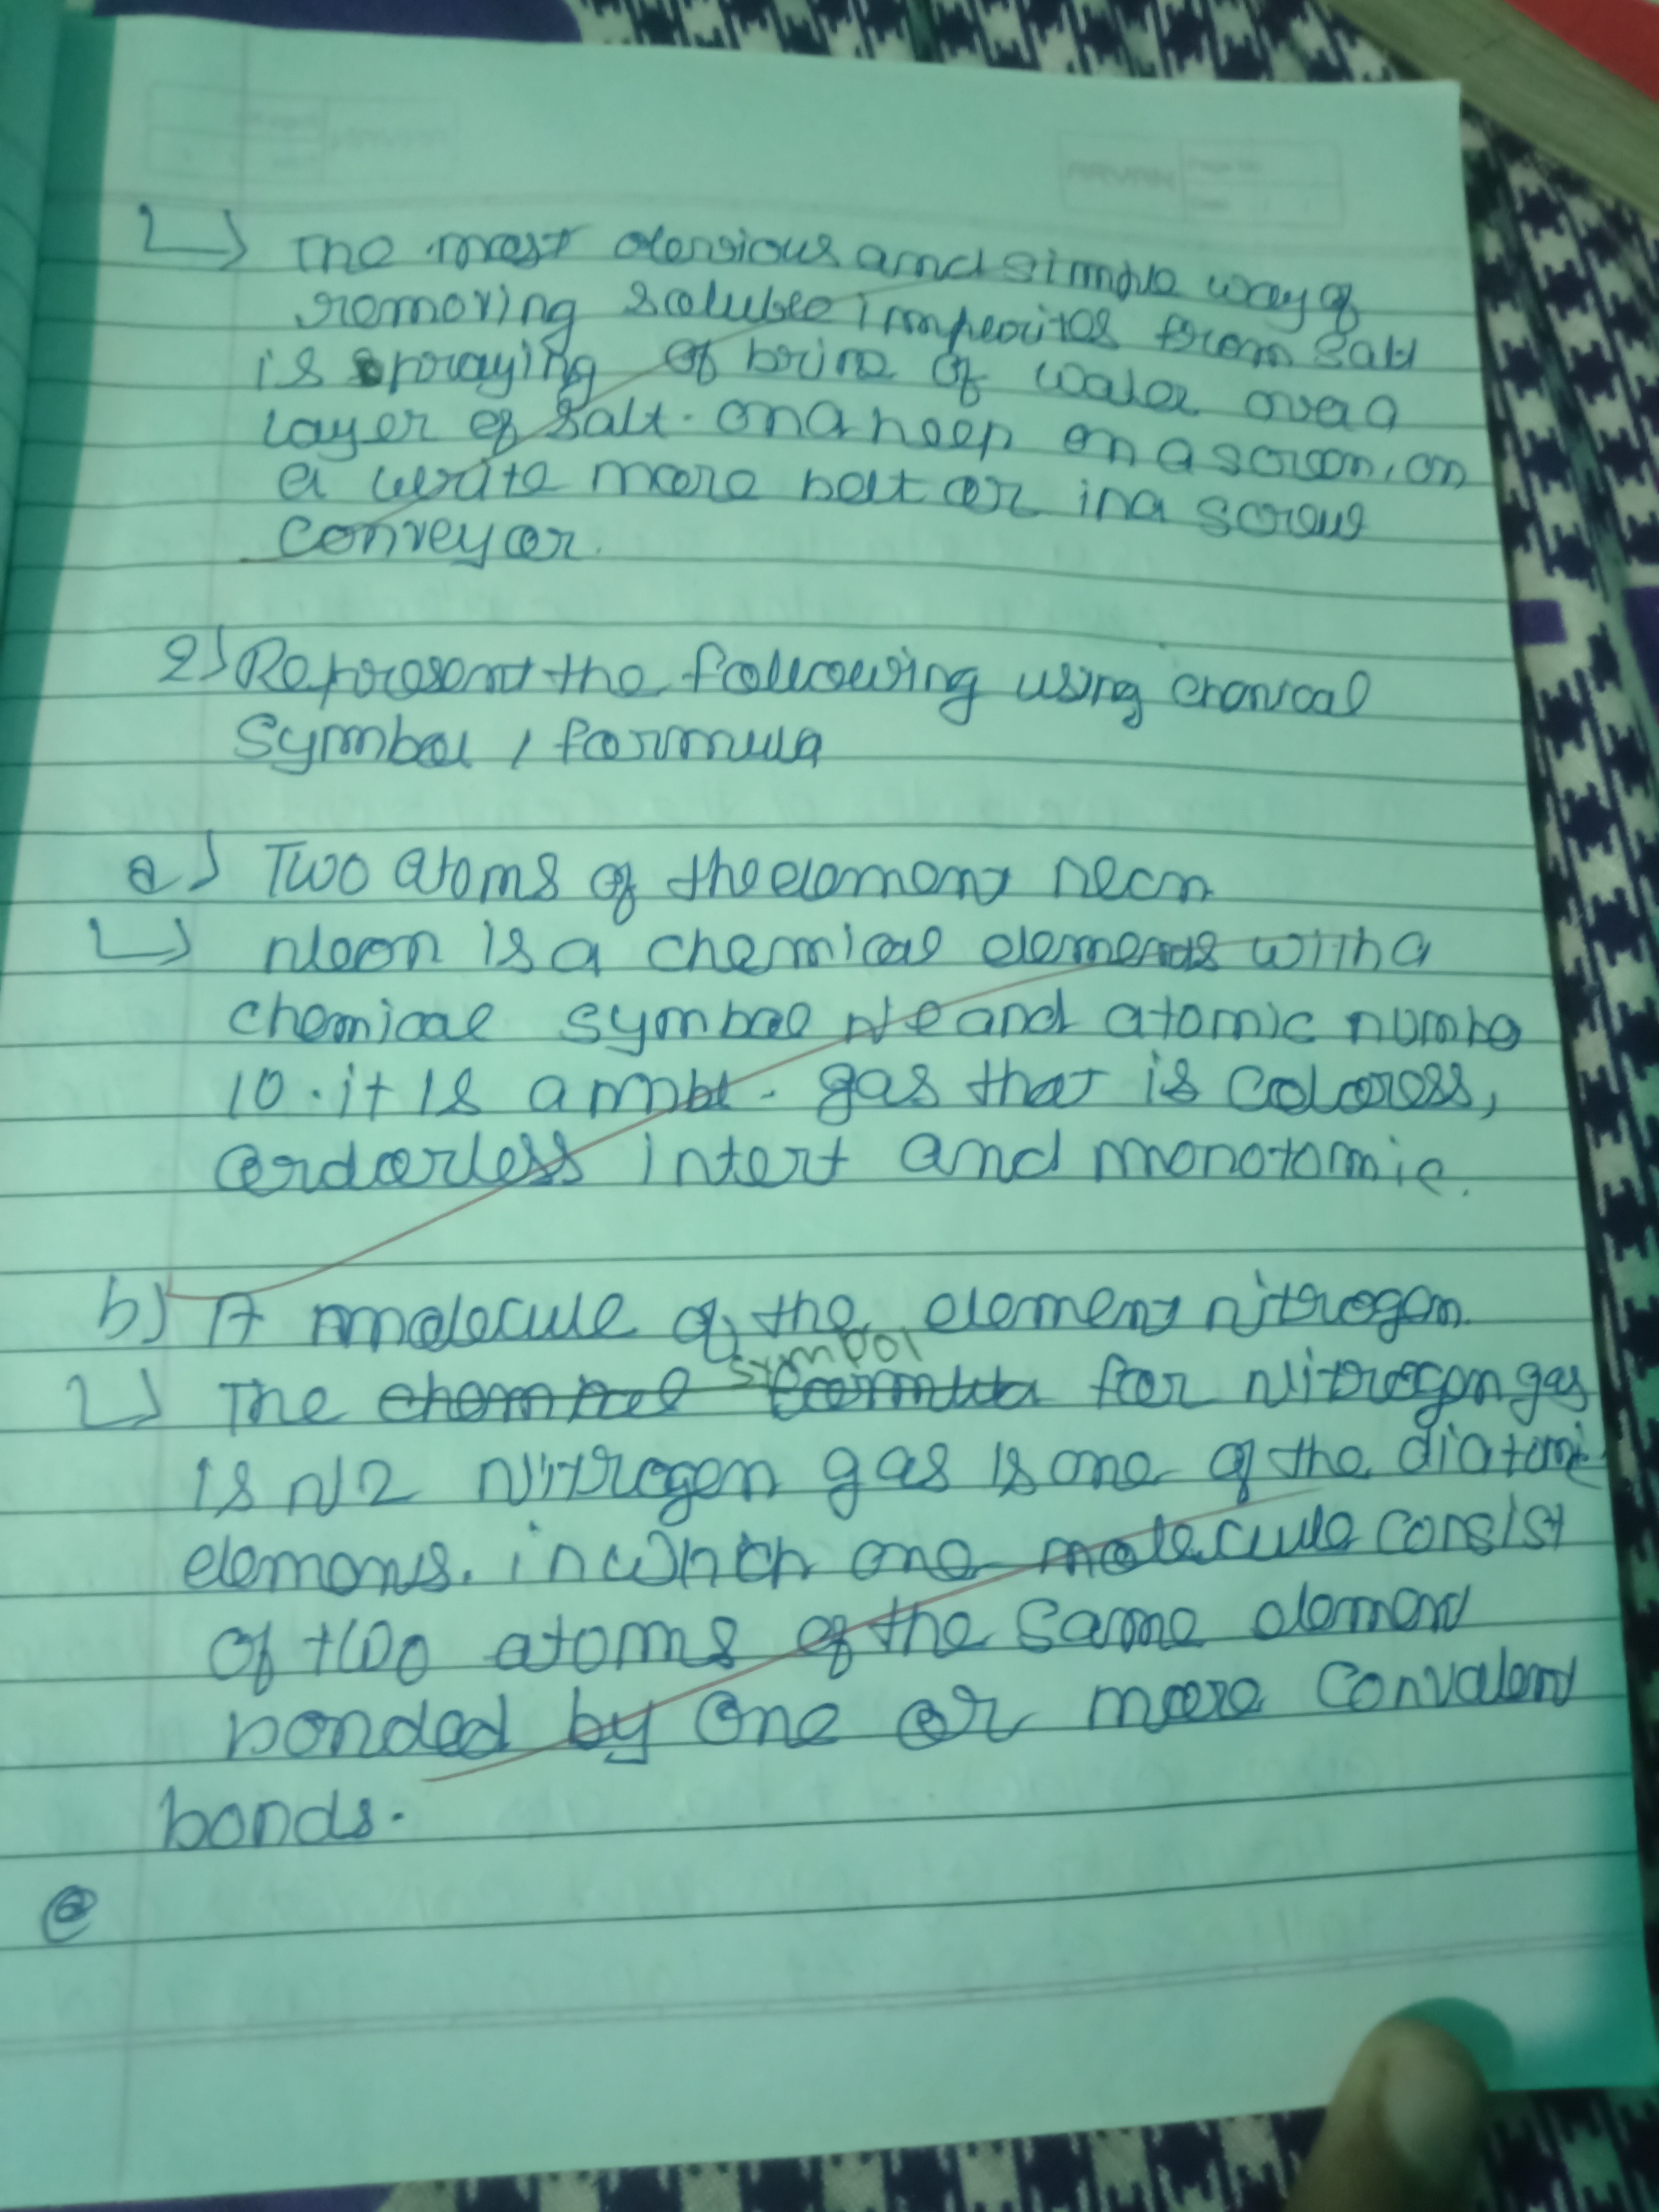 The most obvious and simple way of
removing soluble impurites from salt
is spraying of brine of water over a
layer of salt. on a heep on a screen, on
a more belt or in a screw
conveyor.
2) Represent the following using chemical
Symbol / formula
a) Two atoms of the element neon
Neon is a chemical elements with a
chemical symbol Ne and atomic numbe
10. it is a gas that is Coloress,
ordorless intert and monotomic.
b) A molecule of the element nitrogen.
symbol
The chemical formula for Nitrogen gas
is N2 Nitrogen gas is one of the diatomi
elements. in which one molecule consist
of two atoms of the same element
bonded by one or more Convalent
bonds.